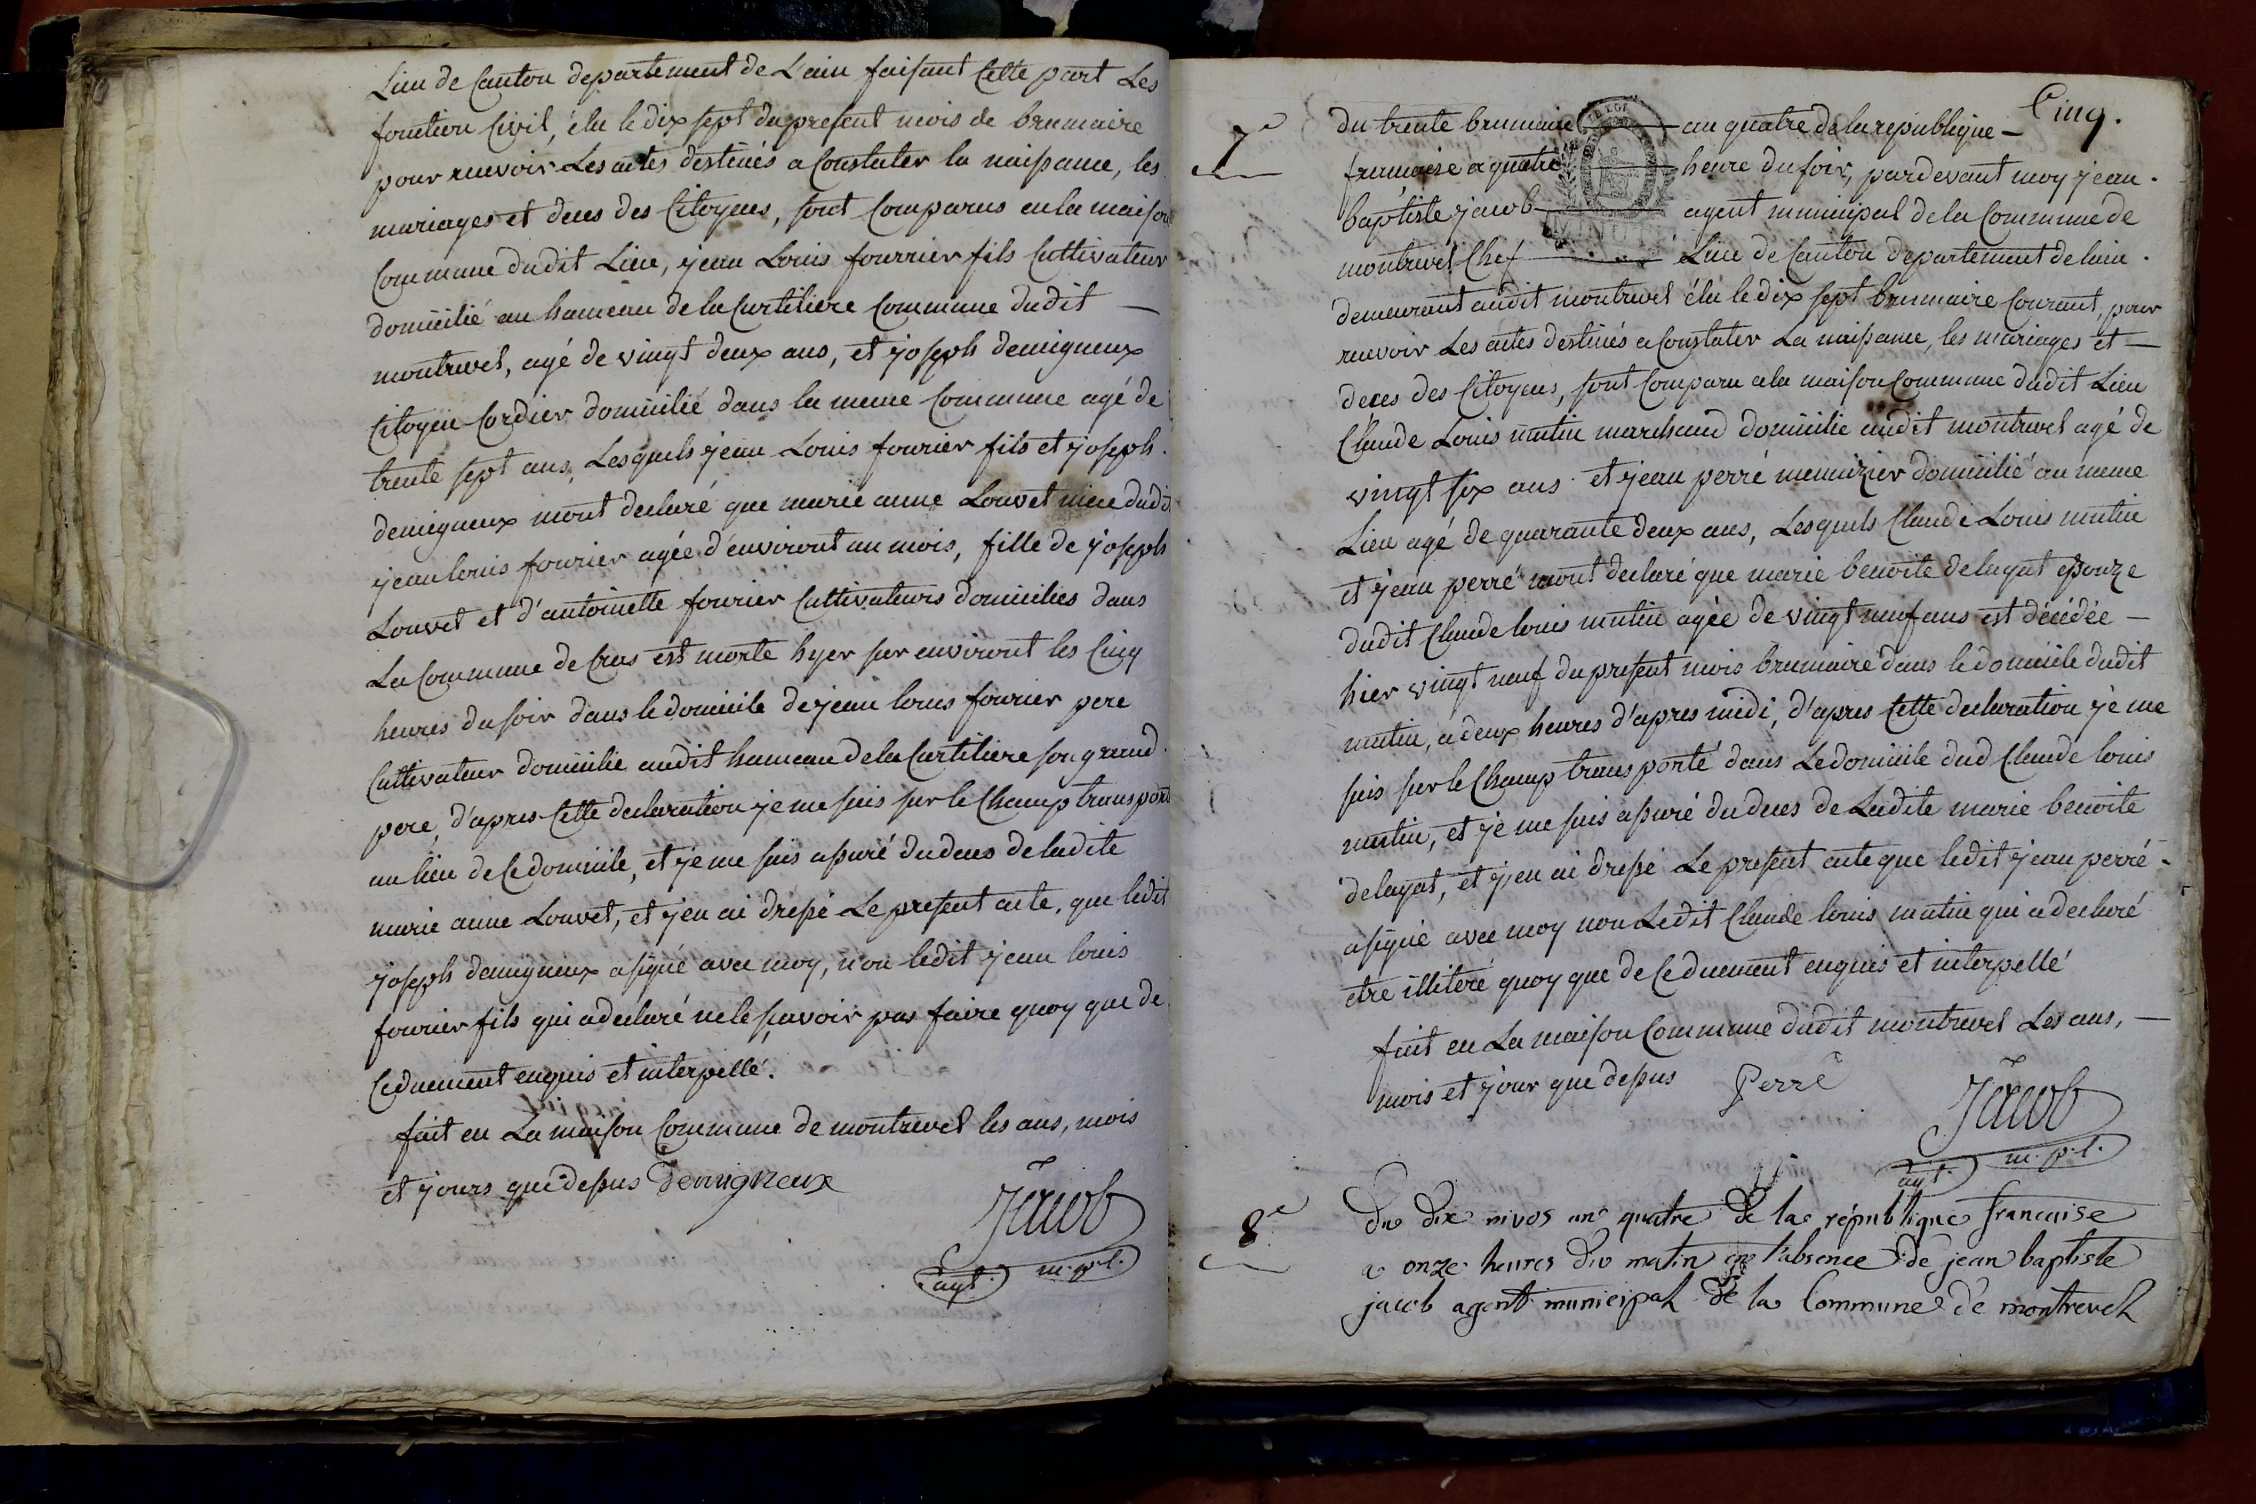 Lieu de Canton departement de L'ain faisant Cette part Les
fonction Civil, élu le dix sept du present mois de brumaire
pour recevoir Les actes destinés a Constater la naissance, les
mariages et deces des Citoyens, sont Comparus en la maison
Commune dudit Lieu, jean Louis fourrier fils Cultivateur
domicilié au hameau de la Curtiliere Commune dudit —
montrevel, agé de vingt deux ans, et joseph demigneux
Citoyen Cordier domicilié dans la meme Commune agé de
trente sept ans, Lesquels jean Louis fourier fils et joseph
demigneux mont declaré que marie anne Louvet niece dudit
jean louis fourier agée d'environt un mois, fille de joseph
Louvet et d'antoinette fourier Cultivateurs domicilies dans
La Commune de Cras est morte hyer sur environt les Cinq
heures du soir dans le domicile de jean louis fourier pere
Cultivateur domicilie audit hameau de la Curtiliere son grand
pere, d'apres Cette declaration je me suis sur le Champ transporté
au lieu de Ce domicile, et je me suis assuré du deces de ladite
marie anne Louvet, et jen ai dressé Le present acte, que ledit
joseph demigneux a signé avec moy, non ledit jean louis
fourier fils qui a declaré ne le scavoir pas faire quoy que de
Ce duement enquis et interpellé.
fait en La maison Commune de montrevel les ans, mois
et jours que dessus Demigneux
Jacob
agt. m.p.l.
Cinq.
7e
du trente brumaire an quatre de la republique —
francaise a quatre heure du soir, pardevant moy jean
baptiste jacob agent municipal de la Commune de
montrevel Chef Lieu de Canton departement de lain
demeurant audit montrevel élu le dix sept brumaire Courant, pour
recevoir Les actes destinés a Constater La naissance, les mariages et —
deces des Citoyens, sont Comparu a la maison Commune dudit Lieu
Claude Louis mutin marchand domicilie audit montrevel agé de
vingt six ans et jean perré menuizier domicilié au meme
Lieu agé de quarante deux ans, Lesquels Claude Louis mutin
et jean perré mont declaré que marie benoite delayat epouze
dudit Claude louis mutin agée de vingt neuf ans est décédée —
hier vingt neuf du present mois brumaire dans le domicile dudit
mutin, a deux heures d'apres midi, d'apres Cette declaration je me
suis sur le Champ transporté dans Le domicile dud Claude louis
mutin, et je me suis assuré du deces de Ladite marie benoite
delayat, et jen ai dressé Le present acte que ledit jean perré
a signé avec moy non Ledit Claude louis mutin qui a declaré
etre illiteré quoy que de Ce duement enquis et interpellé
fait en La maison Commune dudit montrevel Les ans, —
mois et jour que dessus Perré
Jacob
agt. m.p.l.
8e
Du dix nivos an quatre de la république francaise
a onze heures du matin en l'absence de jean baptiste
jacob agent municipal de la Commune de montrevel